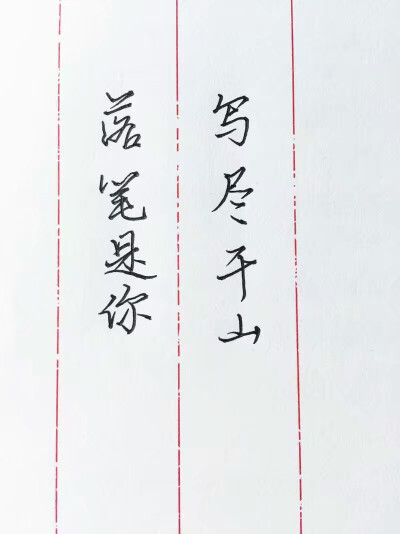 写尽千山
落笔是你